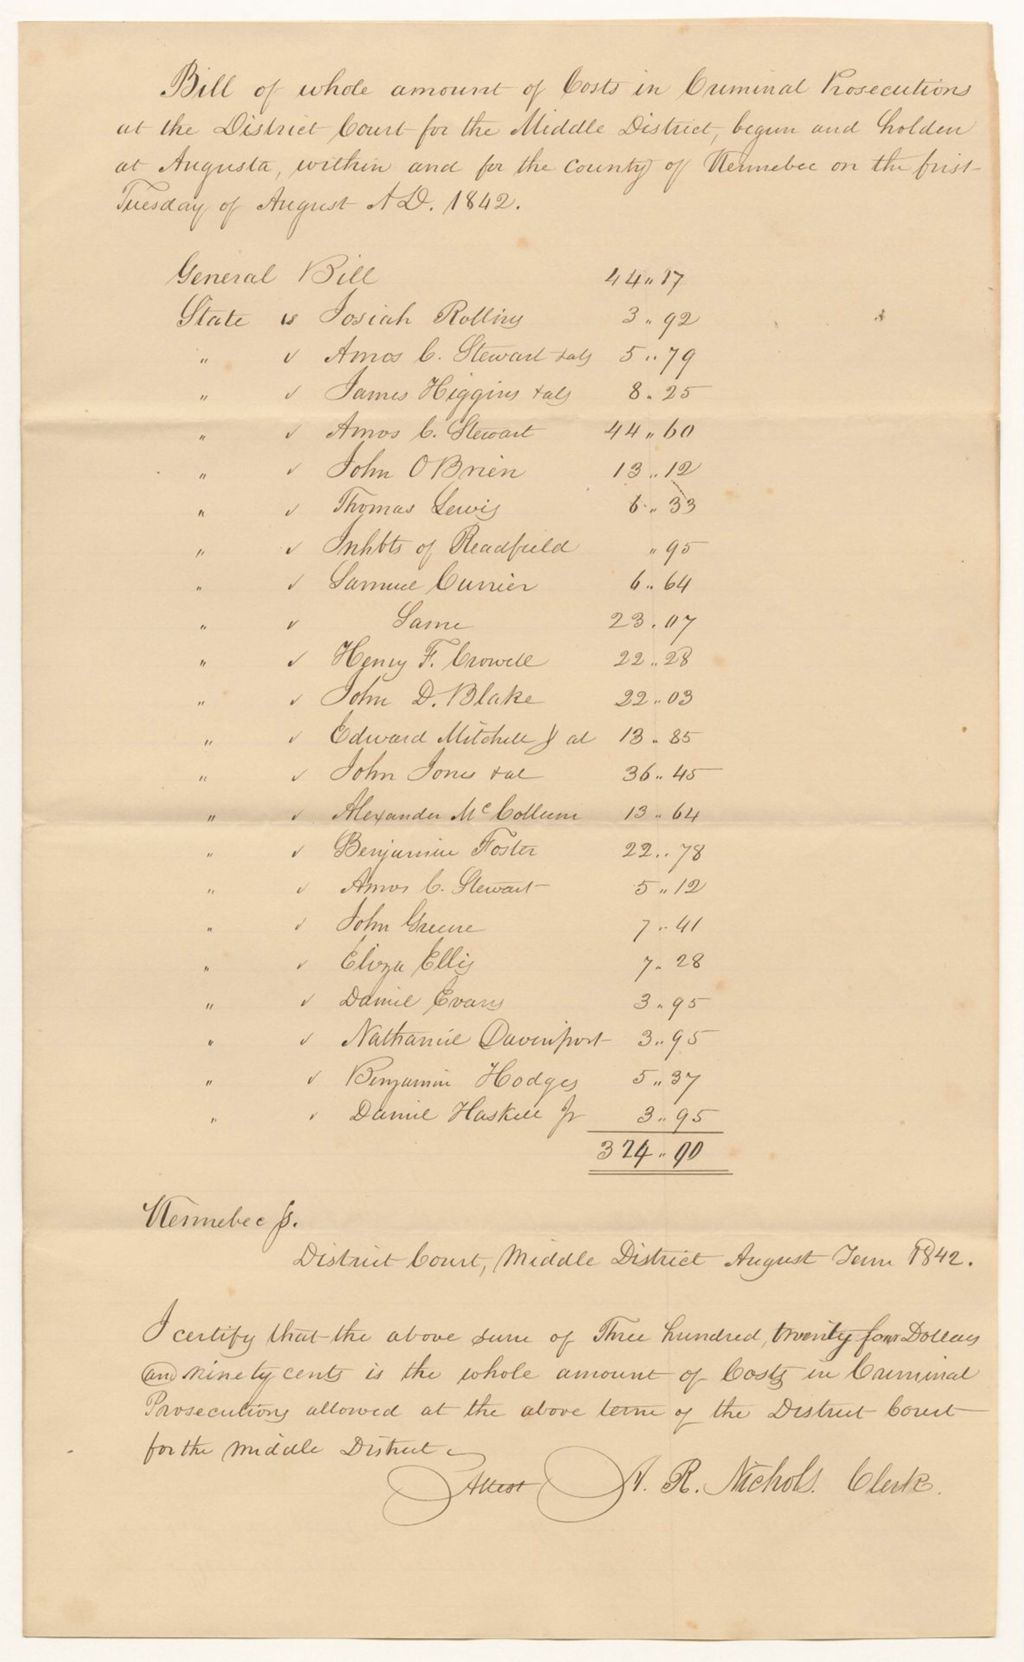 Bill of whole amount of Costs in Criminal Prosecutions
at the District Court for the Middle District, begun and holden
at Augusta, within and for the County of Kennebec on the first
Tuesday of August A D. 1842.
General Bill 44 " 17
State vs Josiah Rollins 3 " 92
" v Amos C. Stewart & als 5 " 79
" v James Higgins & als 8 " 25
" v Amos C. Stewart 44 " 60
" v John O Brien 13 " 12
" v Thomas Lewis 6 " 33
" v Inhbts of Readfield " 95
" v Samuel Currier 6 " 64
" v Same 23 " 07
" v Henry F. Crowell 22 " 28
" v John D. Blake 22 " 03
" v Edward Mitchell & al 13 " 85
" v John Jones & al 36 " 45
" v Alexander McCollum 13 " 64
" v Benjamin Foster 22 " 78
" v Amos C. Stewart 5 " 12
" v John Greene 7 " 41
" v Eliza Ellis 7 " 28
" v Daniel Evans 3 " 95
" v Nathaniel Davenport 3 " 95
" v Benjamin Hodges 5 " 37
" v Daniel Haskell Jr 3 " 95
324 " 90
Kennebec ss.
District Court, Middle District August Term 1842.
I certify that the above sum of Three hundred, twenty four Dollars
and ninety cents is the whole amount of Costs in Criminal
Prosecutions allowed at the above term of the District Court
for the Middle District
Attest A. R. Nichols. Clerk.